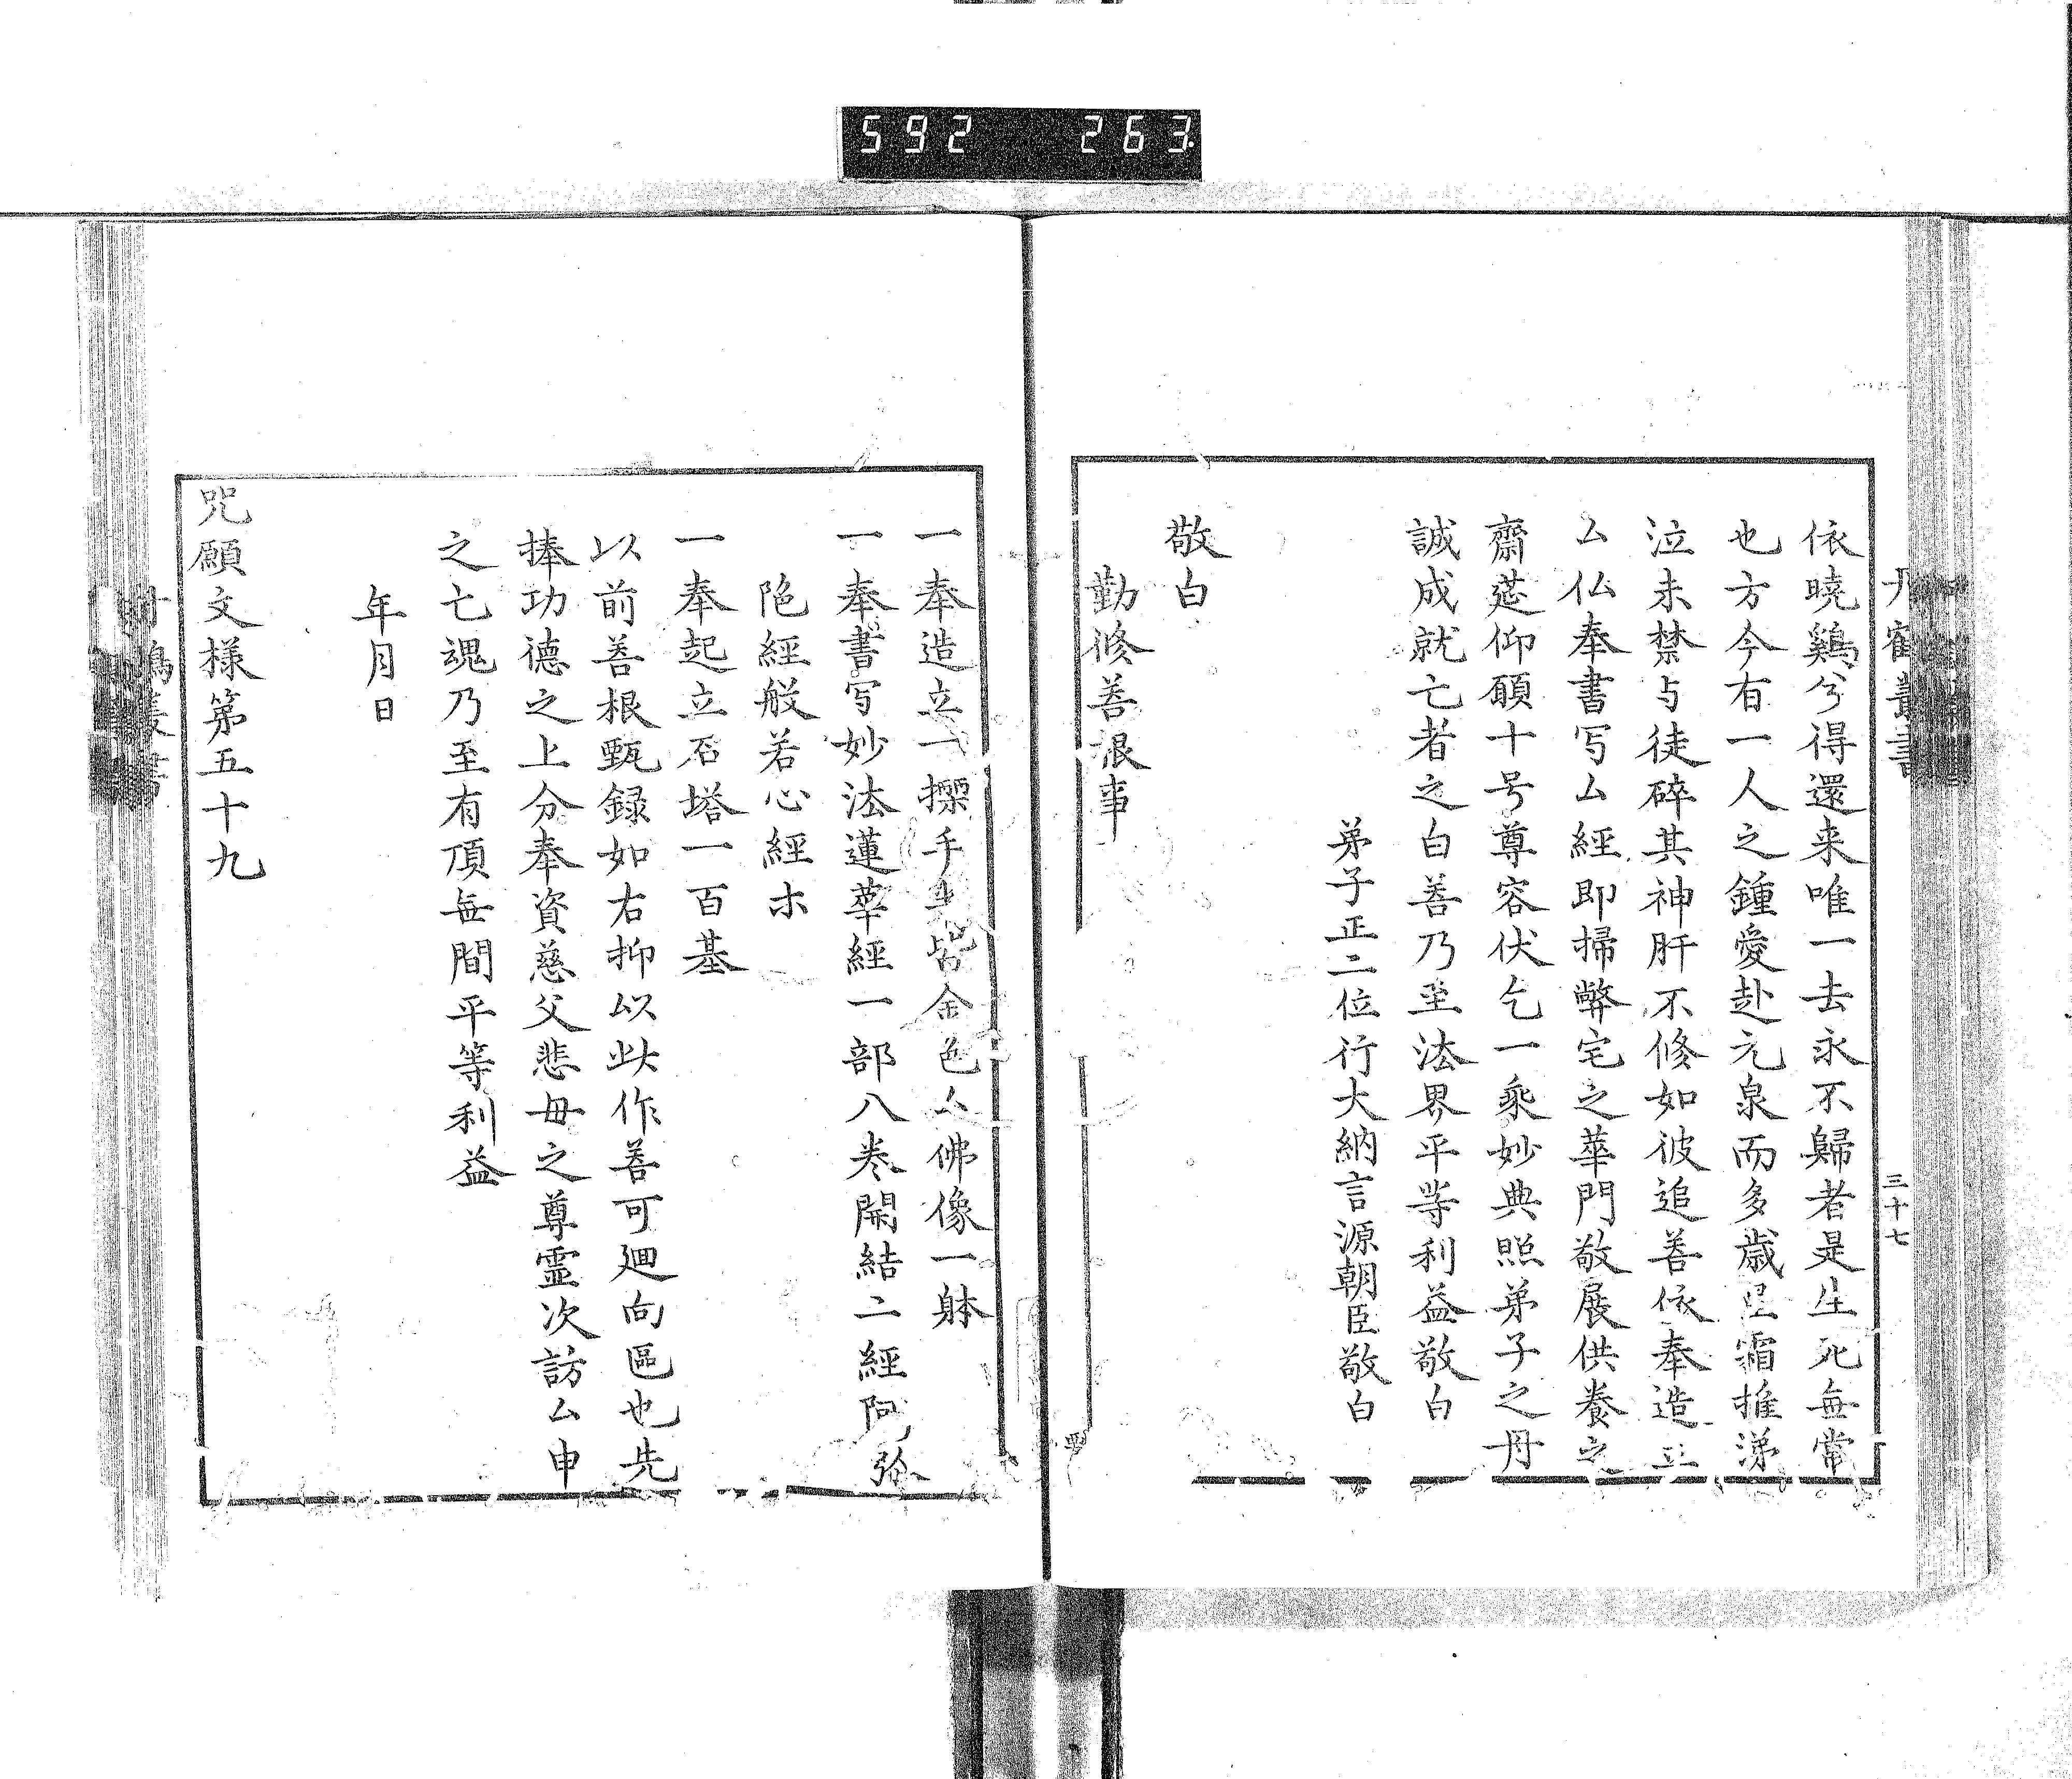 592 263
丹鶴叢書
三十七
依曉鷄兮得還来唯一去永不歸者是生死無常
也方今有一人之鍾愛赴元泉而多歳星霜推涕
泣未禁与徒碎其神肝不修如彼追善依奉造立
ム仏奉書写ム經即掃弊宅之華門敬展供養之
齋莚仰願十号尊容伏乞一乘妙典照弟子之丹
誠成就亡者之白善乃至法界平等利益敬白
弟子正二位行大納言源朝臣敬白
敬白
勤修善根事
一奉造立一搩手半皆金色ム佛像一躰
一奉書写妙法蓮華經一部八巻開結二經阿弥
陁經般若心經ホ
一奉起立石塔一百基
以前善根甄録如右抑以此作善可廻向區也先
捧功德之上分奉資慈父悲母之尊霊次訪ム申
之亡魂乃至有頂無間平等利益
年月日
咒願文様第五十九